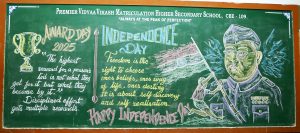 PREMIER VIDYAA VIKASH MATRICULATION HIGHER SECONDARY SCHOOL, CBE - 109.
"ALWAYS AT THE PEAK OF PERFECTION"
AWARD DAY
2025
"The highest
reward for a person's
toil is not what they
get for it but what they
become by it."
Disciplined effort
gets multiple rewards
INDEPENDENCE
DAY
Freedom is the
right to choose
over beliefs, over way
of life, over destiny
It is about self discovery
and self realisation
HAPPY INDEPENDENCE DAY